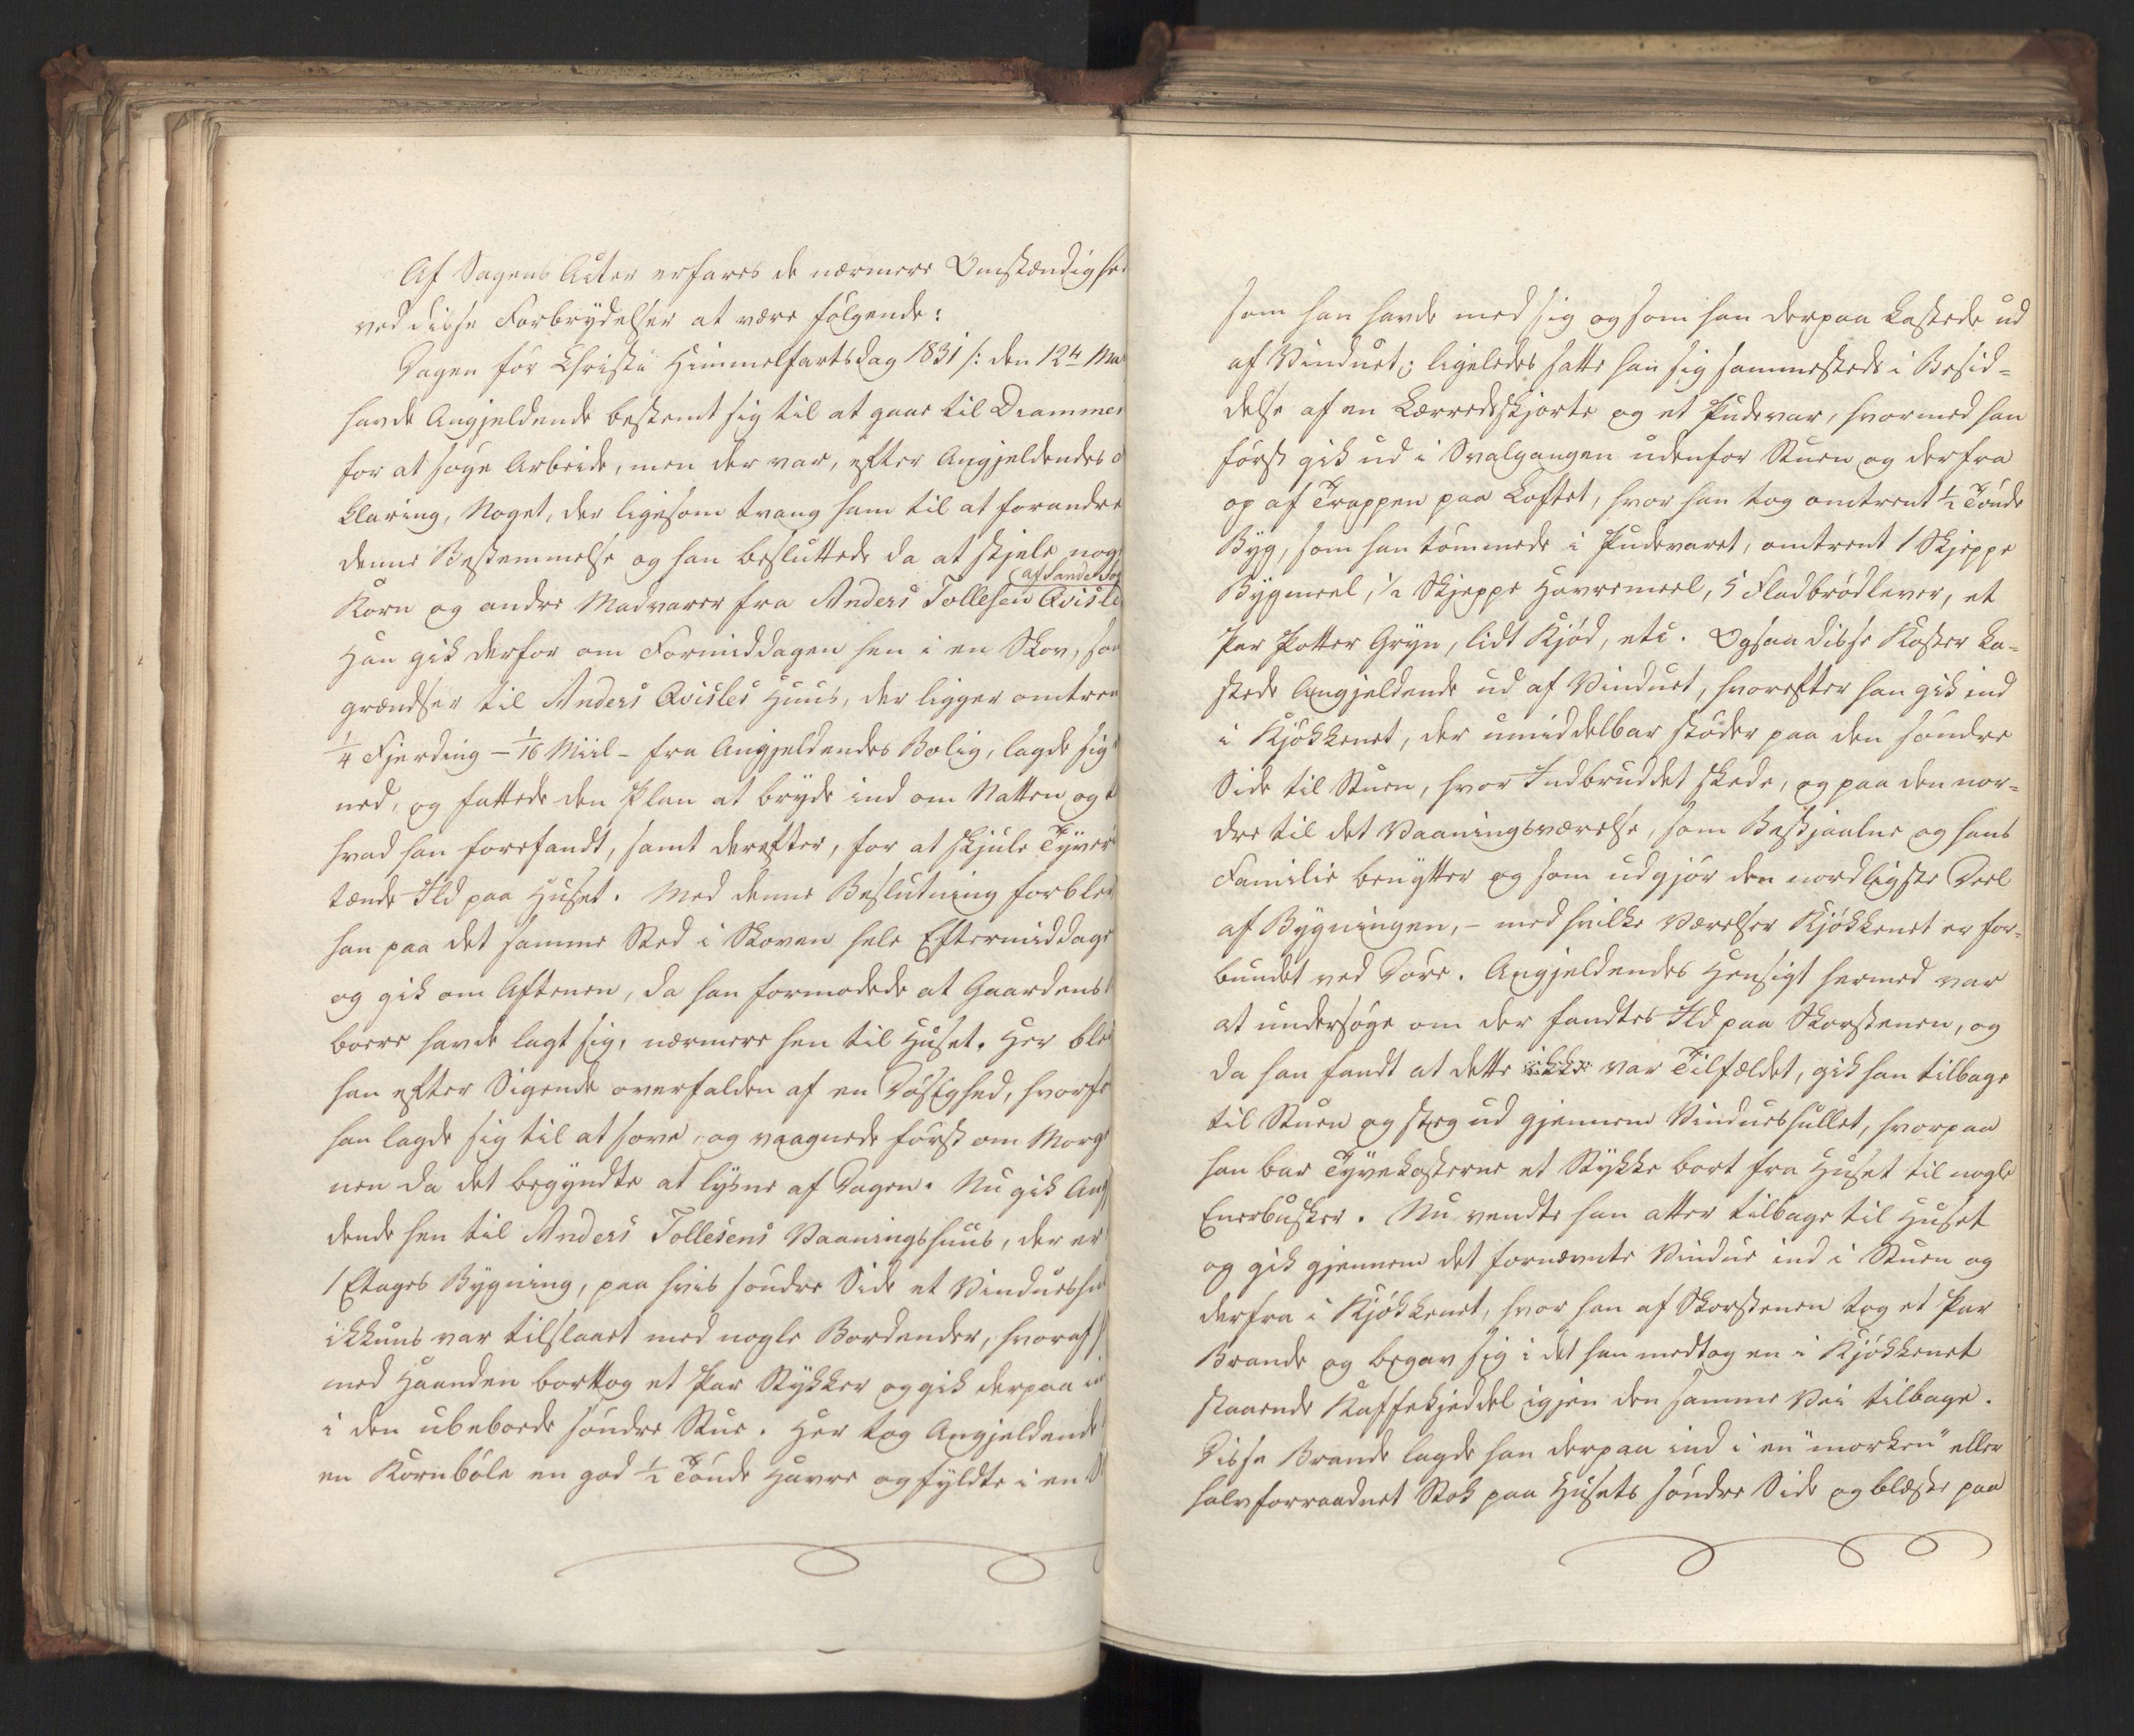 Af Sagens Acter erfares de nærmere Omstændighe
ved disse Forbrydelser at være følgende:
Dagen før Christi Himmelfartsdag 1831 /: den 12te Mai
havde Angjeldende bestemt sig til at gaae til Drammen
for at søge Arbeide, men der var, efter Angjeldendes
klaring, Noget, der ligesom tvang ham til at forandre
denne Bestemmelse og han besluttede da at stjele nog
(af Sande
Korn og andre Madvarer fra Anders Tollesen Qvisle
Han gik derfor om Formiddagen hen i en Skov, som
grændser til Anders Qvisles Huus, der ligger omtren
1/4 Fjerding – 1/16 Miil – fra Angjeldendes Bolig, lagde sig
ned, og fattede den Plan at bryde ind om Natten og
hvad han forefandt, samt derefter, for at skjule Tyver
tænde Ild paa Huset. Med denne Beslutning forblev
han paa det samme Sted i Skoven hele Eftermiddage
og gik om Aftenen, da han formodede at Gaardens
boere havde lagt sig, nærmere hen til Huset. Her blev
han efter Sigende overfalden af en Døsighed, hvorfo
han lagde sig til at sove, og vaagnede først om Morg
nen da det begyndte at lysne af Dagen. Nu gik Ang
dende hen til Anders Tollesens Vaaningshuus, der er
1 Etages Bygning, paa hvis søndre Side et Vindueshu
ikkuns var tilslaaet med nogle Bordender, hvoraf
med Haanden borttog et Par Stykker og gik derpaa in
i den ubeboede søndre Stue. Her tog Angjeldende
en Kornbøle en god 1/2 Tønde Havre og fyldte i en
som han havde med sig og som han derpaa kastede ud
af Vinduet; ligeledes satte han sig sammesteds i Besid-
delse af en Lærredsskjorte og et Pudevar, hvormed han
først gik ud i Svalgangen udenfor Stuen og derfra
op af Trappen paa Loftet, hvor han tog omtrent 1/2 Tønde
Byg, som han tømmede i Pudevaret, omtrent 1 Skjeppe
Bygmeel, 1/2 Skjeppe Havremeel, 5 Fladbrødlever, et
Par Potter Gryn, lidt Kjød, etc. Ogsaa disse Koster ka-
stede Angjeldende ud af Vinduet, hvorefter han gik ind
i Kjøkkenet, der umiddelbar støder paa den søndre
Side til Stuen, hvor Indbruddet skede, og paa den nor-
dre til det Vaaningsværelse, som Bestjaalne og hans
Familie benytter og som udgjør den nordligste Deel
af Bygningen, – med hvilke Værelser Kjøkkenet er for-
bundet ved Døre. Angjeldendes Hensigt hermed var
at undersøge om der fandtes Ild paa Skorstenen, og
da han fandt at dette ikke var Tilfældet, gik han tilbage
til Stuen og steg ud gjennem Vindueshullet, hvorpaa
han bar Tyvekosterne et Stykke bort fra Huset til nogle
Enerbusker. Nu vendte han atter tilbage til Huset
og gik gjennem det fornævnte Vindue ind i Stuen og
derfra i Kjøkkenet, hvor han af Skorstenen tog et Par
Brande og begav sig i det han medtog en i Kjøkkenet
staaende Kaffekjeddel igjen den samme Vei tilbage.
Disse Brande lagde han derpaa ind i en "morken" eller
halvforraadnet Stok paa Husets søndre Side og blæste paa